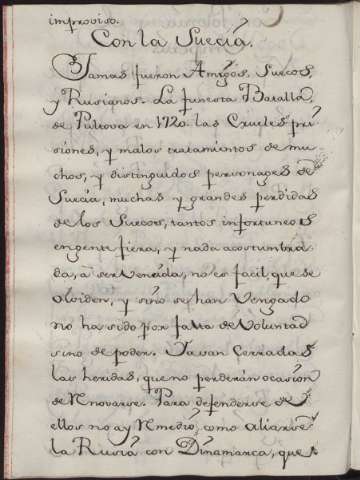 improviso.
Con la Suecia.
Jamas fueron Amigos, Suecos,
y Rusianos. La funesta Batalla,
de Pultova en 1720. las Crueles pri
siones, y malos tratamientos de mu
chos, y distinguidos personages de
Suecia, muchas y grandes perdidas
de los Suecos, tantos infortuneos
en gente fiera, y nada acostumbra
da, a ser Vencida, no es facil que se
olviden, y sino se han Vengado
no ha sido por falta de Voluntad
sino de poder. Tavan Cerradas
las heridas, que no perderán ocasion
de Renovarse. Para defenderse de
ellos no ay Remedio, como aliarse
la Rusia con Dinamarca, que